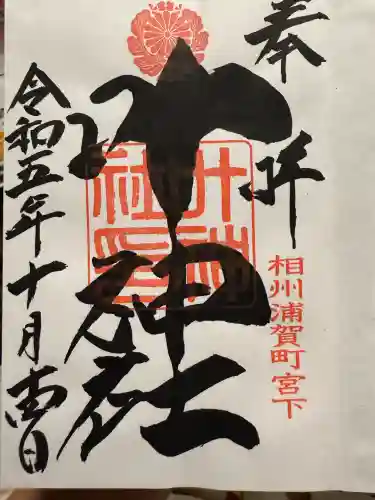 奉拝
相州浦賀町宮下
叶神社
叶神
社印
令和五年十月日